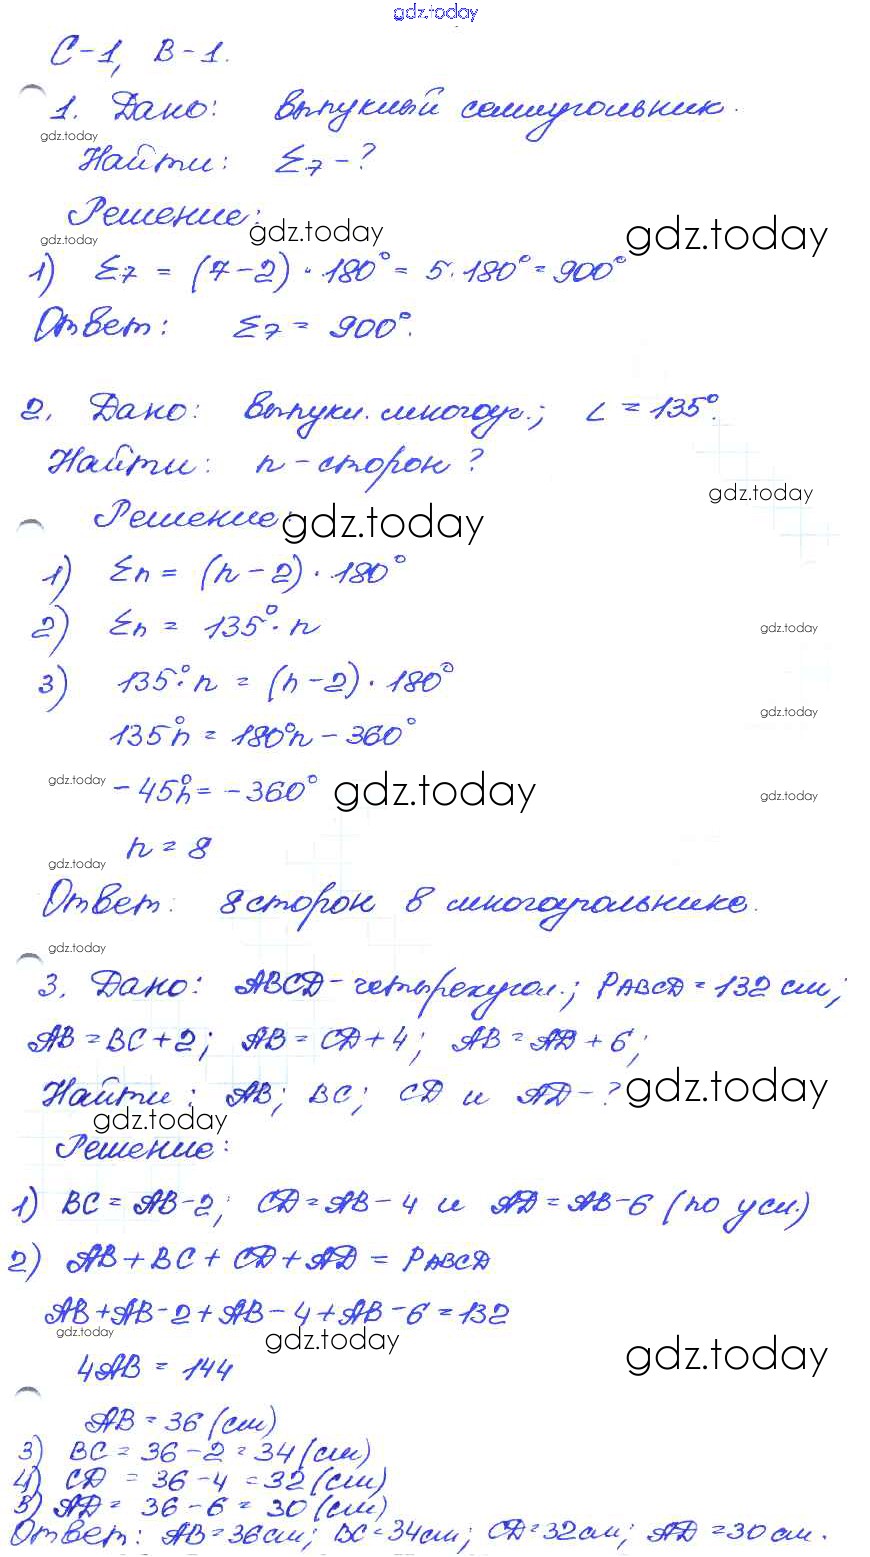 gdz.today
С-1, В-1.
1. Дано: выпуклый семиугольник.
gdz.today
Найти: Σ7 - ?
Решение:
gdz.today gdz.today gdz.today
1) Σ7 = (7-2) · 180° = 5·180° = 900°
Ответ: Σ7 = 900°.
2. Дано: выпукл. многоуг.; ∠ = 135°.
Найти: n - сторон ?
gdz.today
Решение: gdz.today
1) Σn = (n-2) · 180°
2) Σn = 135° · n
gdz.today
3) 135° · n = (n-2) · 180°
gdz.today
135°n = 180°n - 360°
gdz.today -45°n = -360° gdz.today gdz.today
n = 8
gdz.today
Ответ: 8 сторон в многоугольнике.
gdz.today
3. Дано: ABCD - четырехугол.; PABCD = 132 см;
AB = BC + 2; AB = CD + 4; AB = AD + 6;
Найти: AB; BC; CD и AD - ? gdz.today
gdz.today
Решение:
1) BC = AB - 2; CD = AB - 4 и AD = AB - 6 (по усл.)
2) AB + BC + CD + AD = PABCD
AB + AB - 2 + AB - 4 + AB - 6 = 132
gdz.today gdz.today gdz.today
4AB = 144
AB = 36 (см)
3) BC = 36 - 2 = 34 (см)
4) CD = 36 - 4 = 32 (см)
5) AD = 36 - 6 = 30 (см)
Ответ: AB = 36 см; BC = 34 см; CD = 32 см; AD = 30 см.